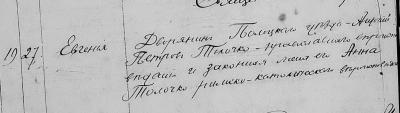 19 27 Евгенія Дворянинъ Полоцкаго уѣзда Андрей
Петровъ Толочко - православнаго вѣроиспо
вѣданія и законная жена его Анна
Толочко римско-католическаго вѣроисповѣданія